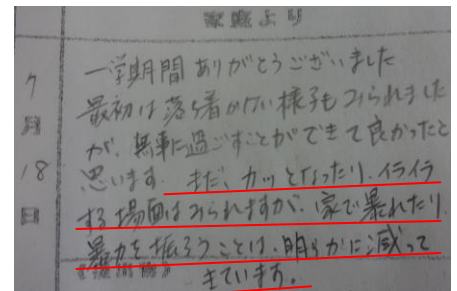 家庭より
7月18日
一学期間ありがとうございました
最初は落ち着かない様子もみられました
が、無事に過ごすことができて良かったと
思います。まだ、カッとなったり、イライラ
する場面はみられますが、家で暴れたり
暴力を振ろうことは、明らかに減って
きています。